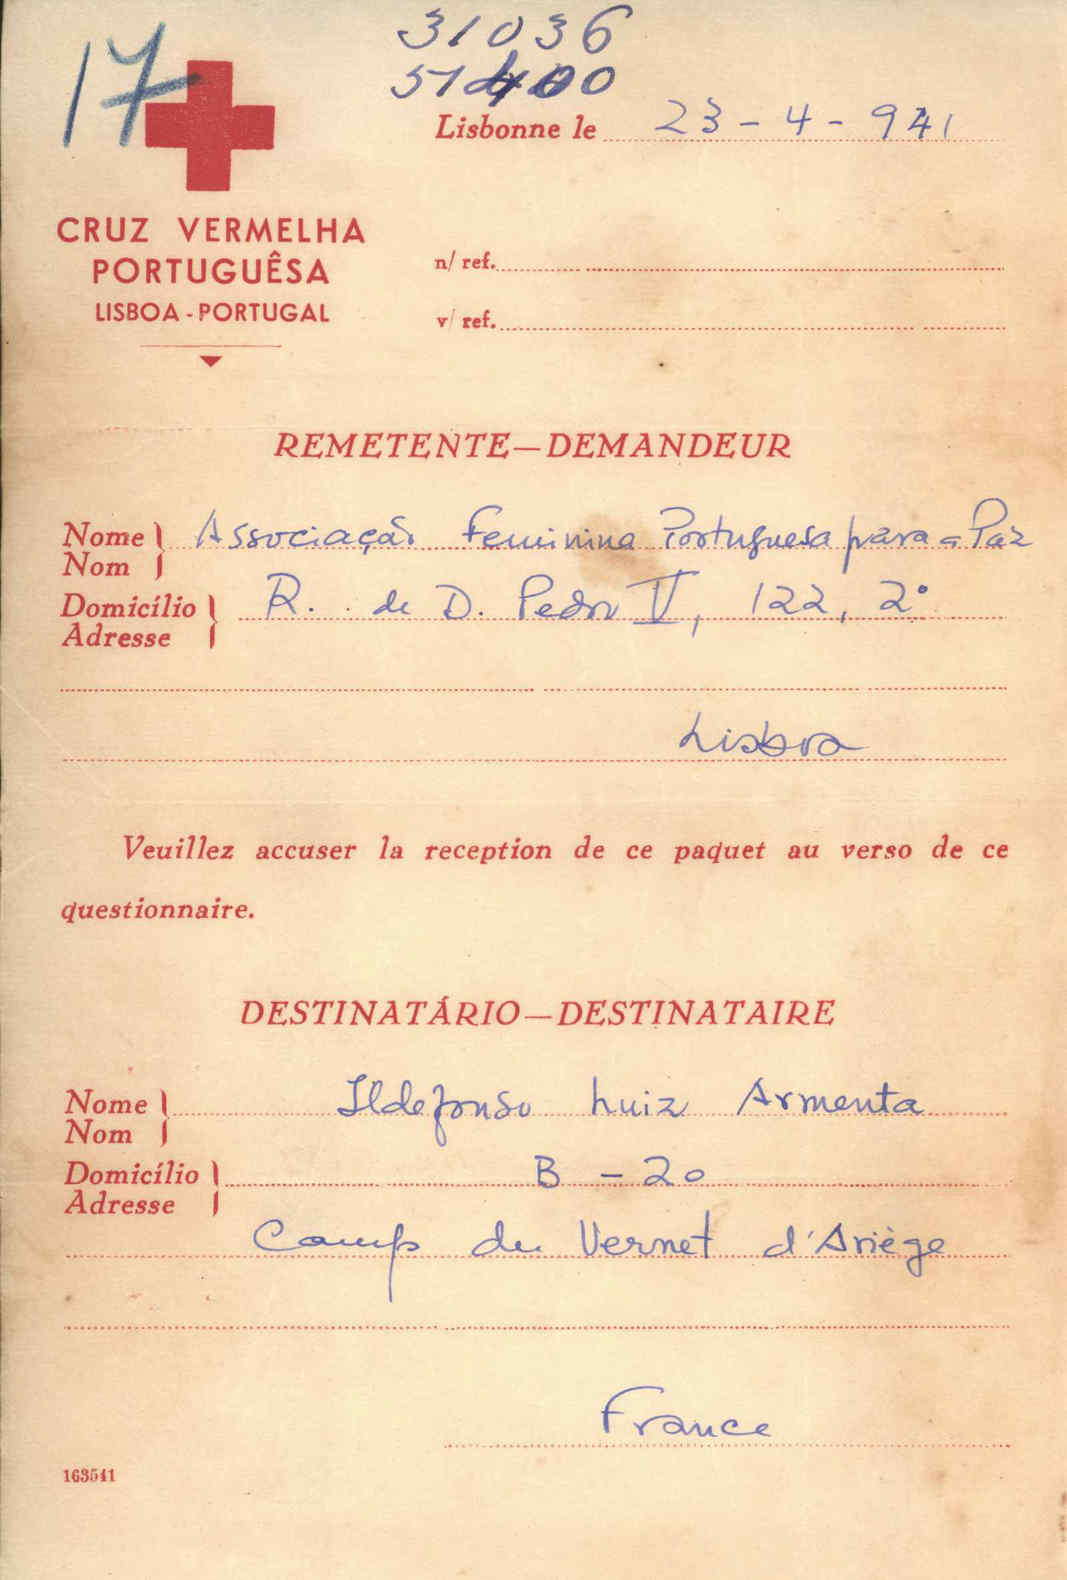 17
31036
Lisbonne le 23-4-941
CRUZ VERMELHA
PORTUGUÊSA
LISBOA - PORTUGAL
n/ ref.
v/ ref.
REMETENTE—DEMANDEUR
Nome Associação Feminina Portuguesa para a Paz
Nom
Domicílio R. de D. Pedro V, 122, 2º
Adresse
Lisboa
Veuillez accuser la reception de ce paquet au verso de ce
questionnaire.
DESTINATÁRIO—DESTINATAIRE
Nome Ildefonso Luiz Armenta
Nom
Domicílio B - 20
Adresse
Camp du Vernet d'Ariège
France
163541